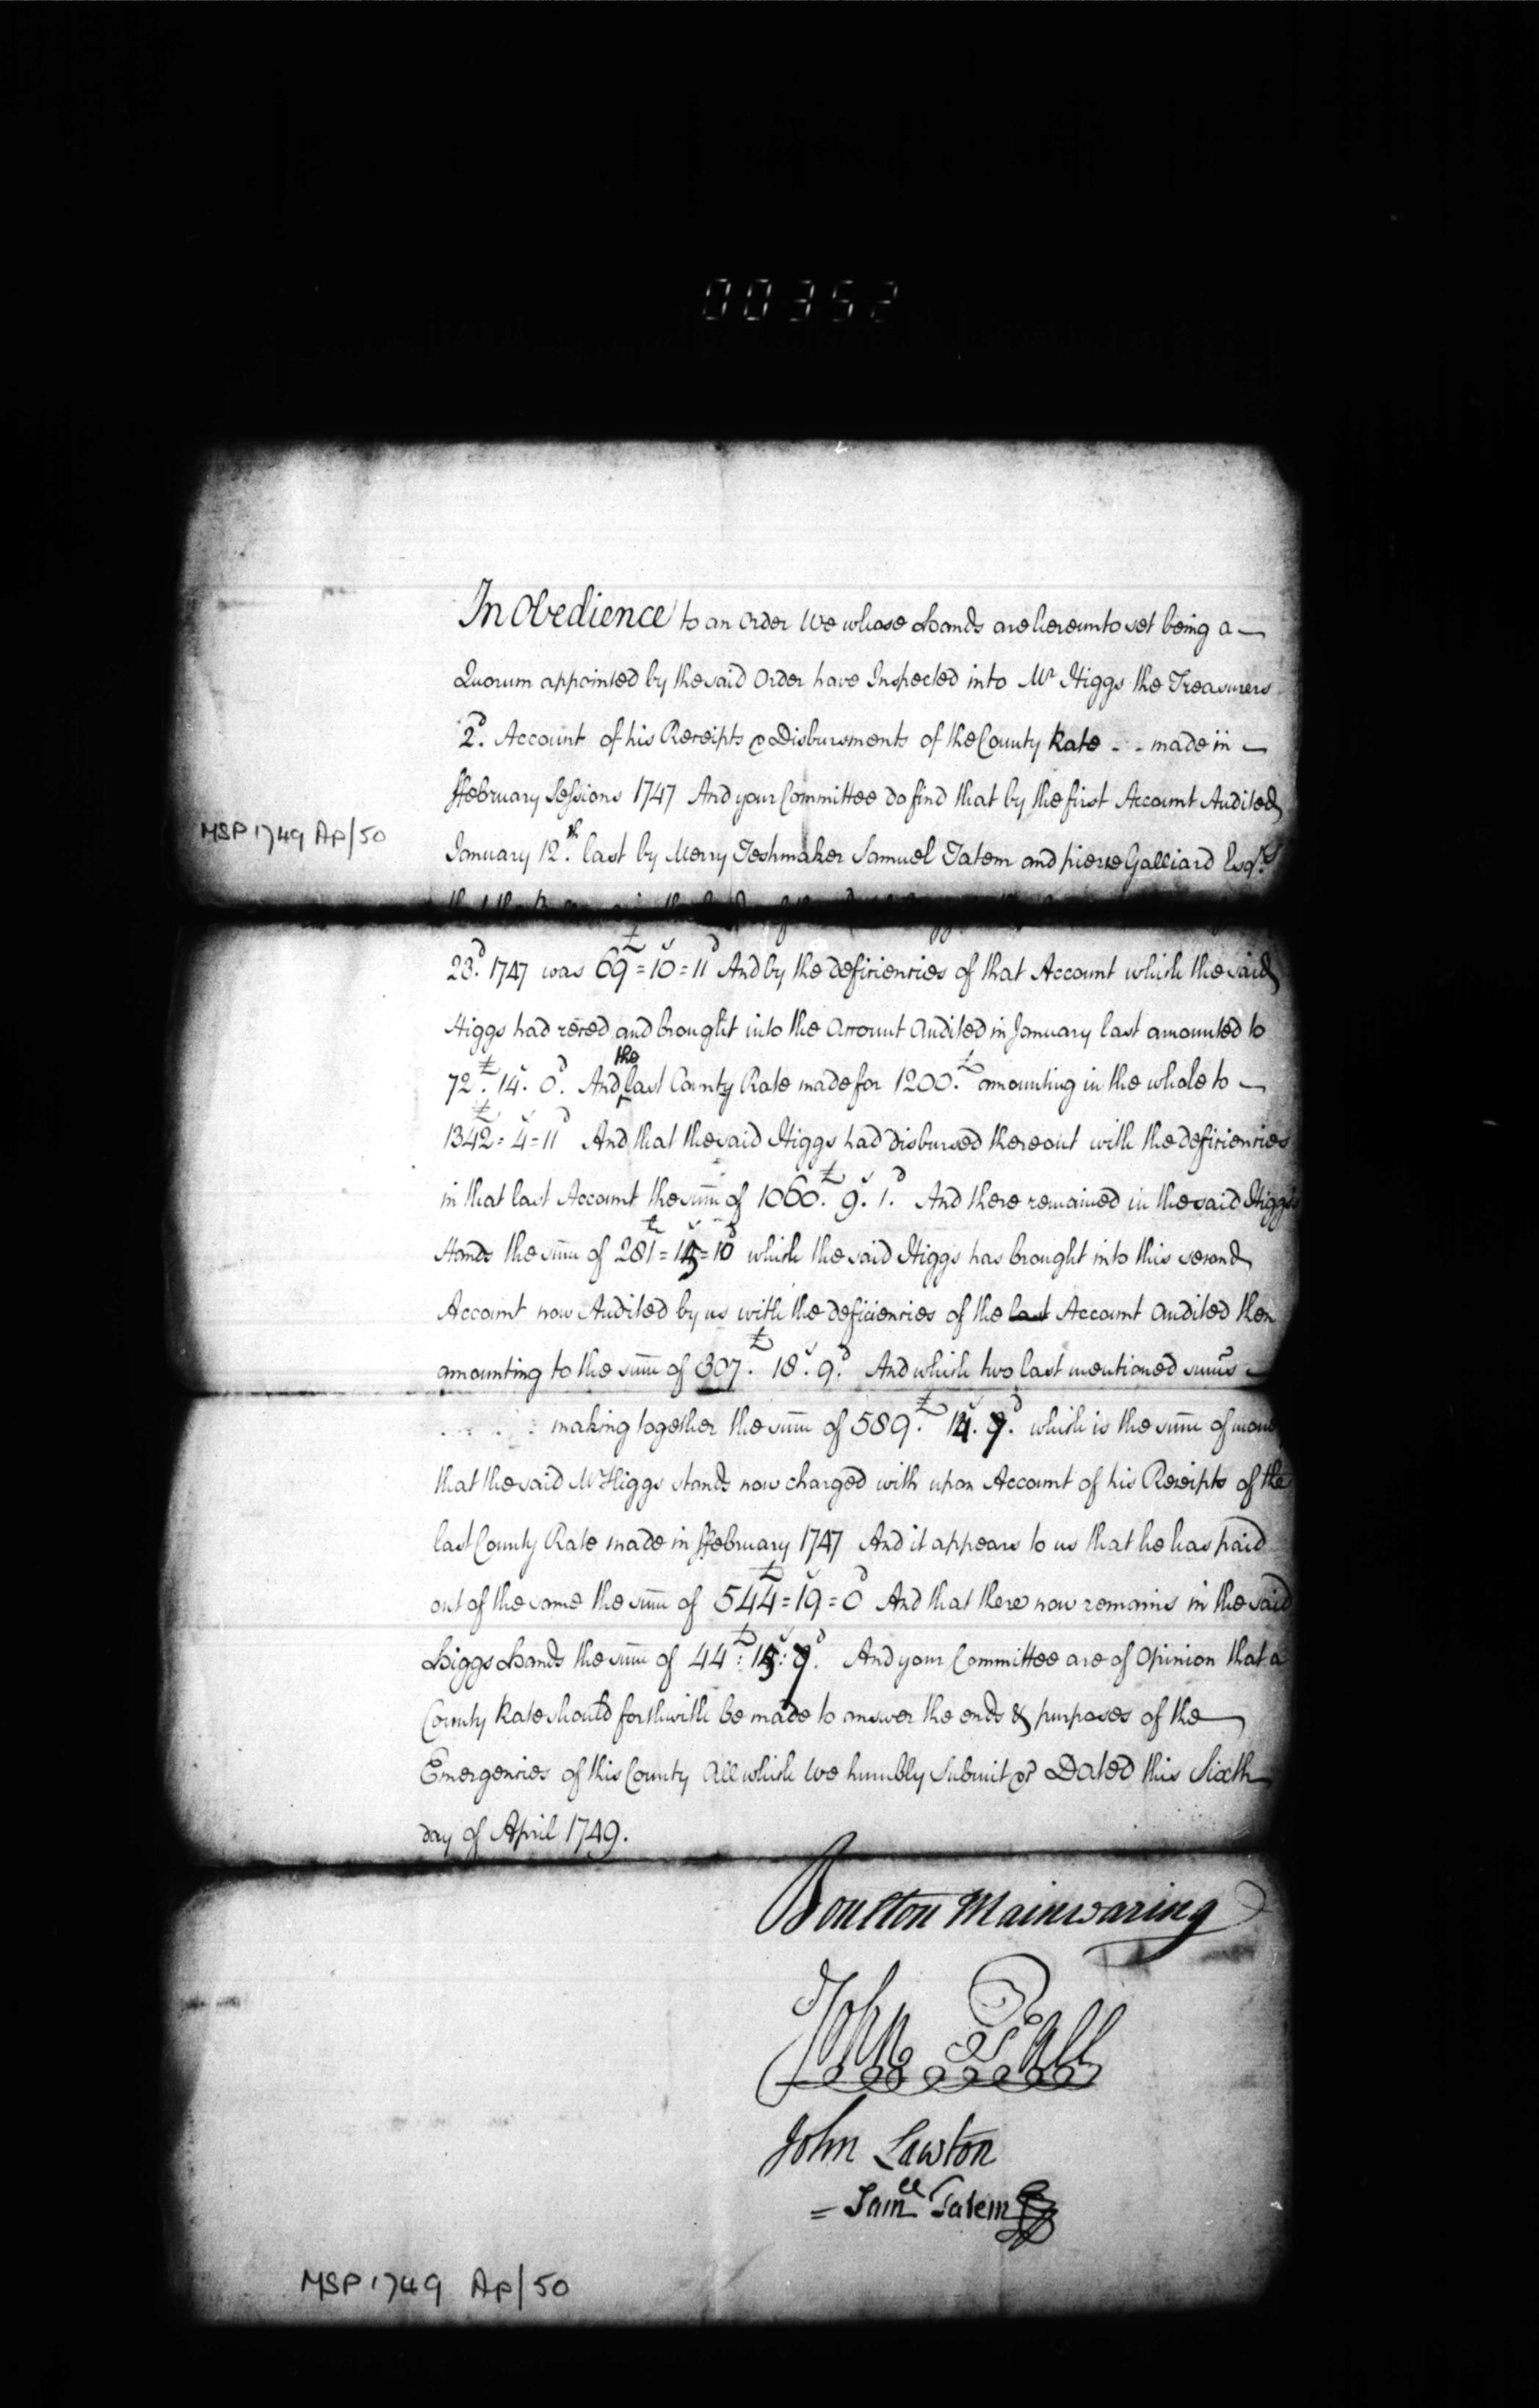 00352
In Obedience to an Order We whose Hands are hereunto set being a
Quorum appointed by the said Order have Inspected into Mr Higgs the Treasurers
2d. Account of his Receipts & Disbursments of the County Rate - - made in
ffebruary Sessions 1747 And your Committee do find that by the first Account Audited
MSP 1749 Ap/50
January 12th. last by Merry Teshmaker Samuel Tatem and pierre Galliard Esqrs.
23d. 1747 was 69£=10s=11d And by the deficiencies of that Account which the said
Higgs had reced and brought into the Account Audited in January last amounted to
72£. 14s. 0d. And the last County Rate made for 1200.£ amounting in the whole to
1342£=4s=11d And that the said Higgs had disbursed thereout with the deficiencies
in that last Account the sum̅ of 1060.£ 9s. 1d. And there remained in the said Higgs's
Hands the sum̅ of 281£=15s=10d which the said Higgs has brought into this second
Account now Audited by us with the deficiencies of the last Account Audited then
amounting to the sum̅ of 307.£ 18s. 9d. And which two last mentioned sum̅s
making together the sum̅ of 589.£ 14s. 7d. which is the sum̅ of
that the said Mr Higgs stands now charged with upon Account of his Receipts of the
last County Rate made in ffebruary 1747 And it appears to us that he has paid
out of the same the sum̅ of 544£=19s=0d And that there now remains in the said
Higgs Hands the sum̅ of 44£:15s:7d. And your Committee are of Opinion that a
County Rate should forthwith be made to answer the ends & purposes of the
Emergencies of this County All which We humbly Submit &c Dated this Sixth
day of April 1749.
Boulton Mainwaring
John
John Lawton
= Samll Tatem
MSP 1749 Ap/50